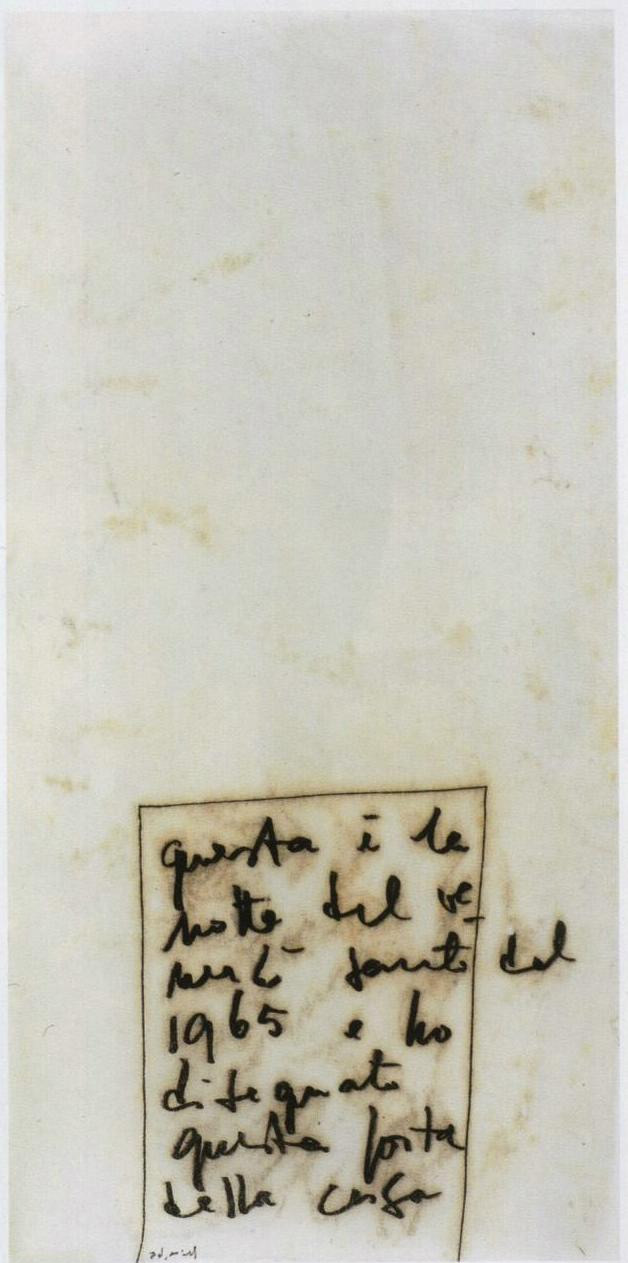 questa è la
notte del ve-
nerdì santo del
1965 e ho
disegnato
questa porta
della casa